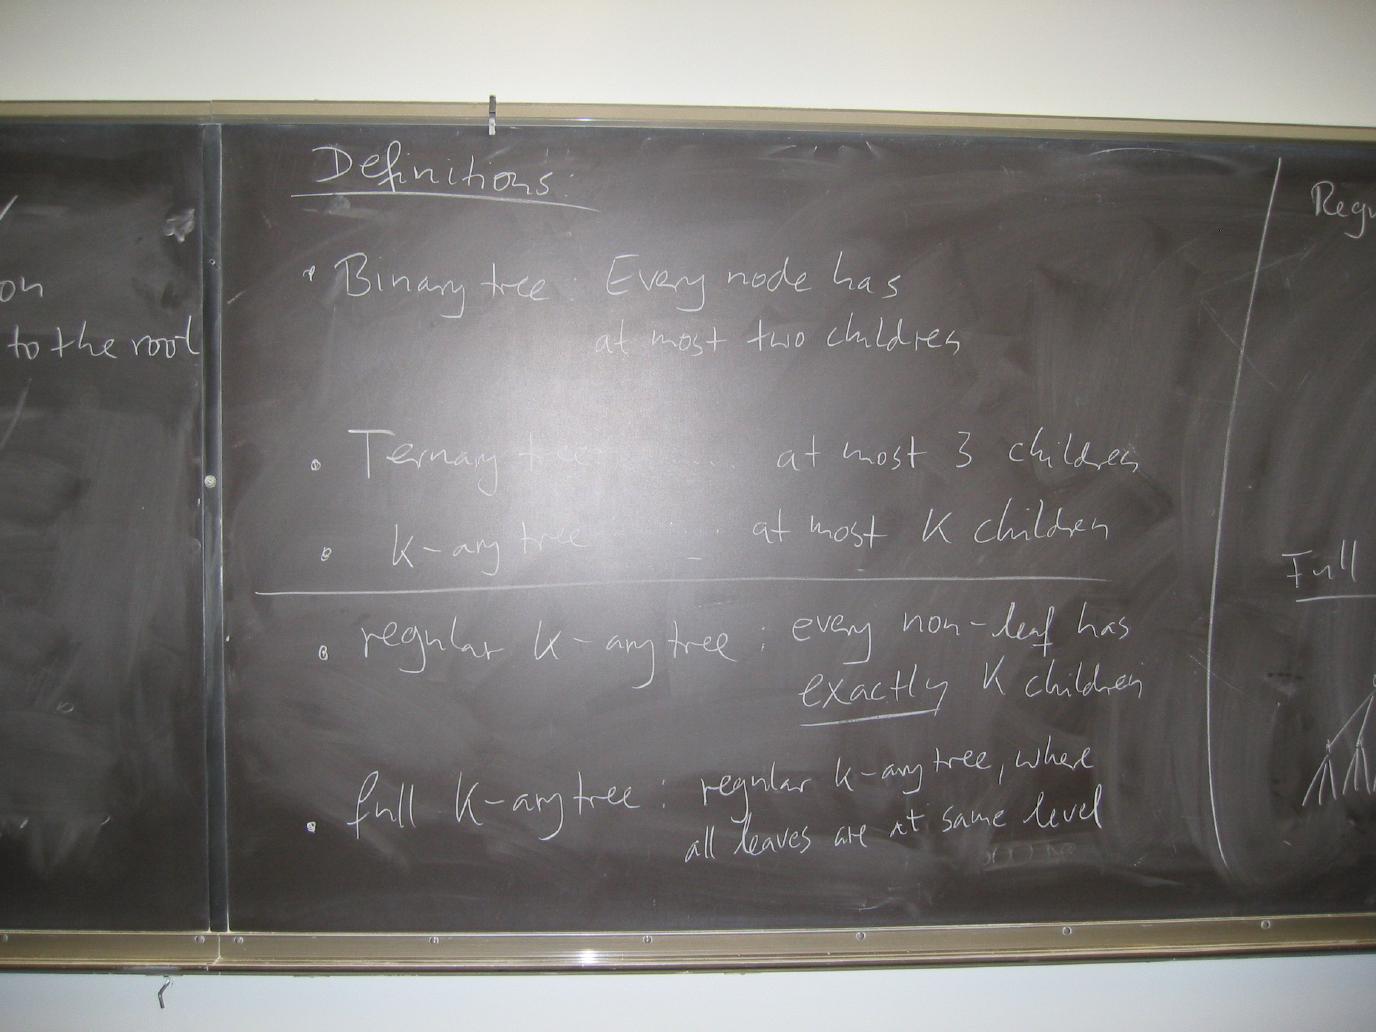 on
to the root
Definitions:
• Binary tree : Every node has
at most two children
• Ternary tree ........ at most 3 children
• K-ary tree ........ at most K children
• regular K-ary tree : every non-leaf has
exactly K children
• full K-ary tree : regular K-ary tree, where
all leaves are at same level
Regu
Full